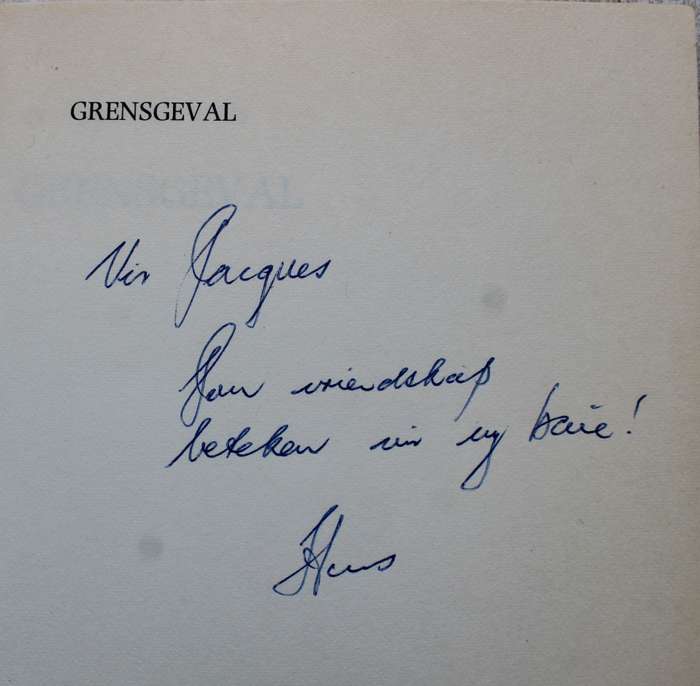 GRENSGEVAL
Vir Jacques
Jou vriendskap
beteken vir my baie!
Hans